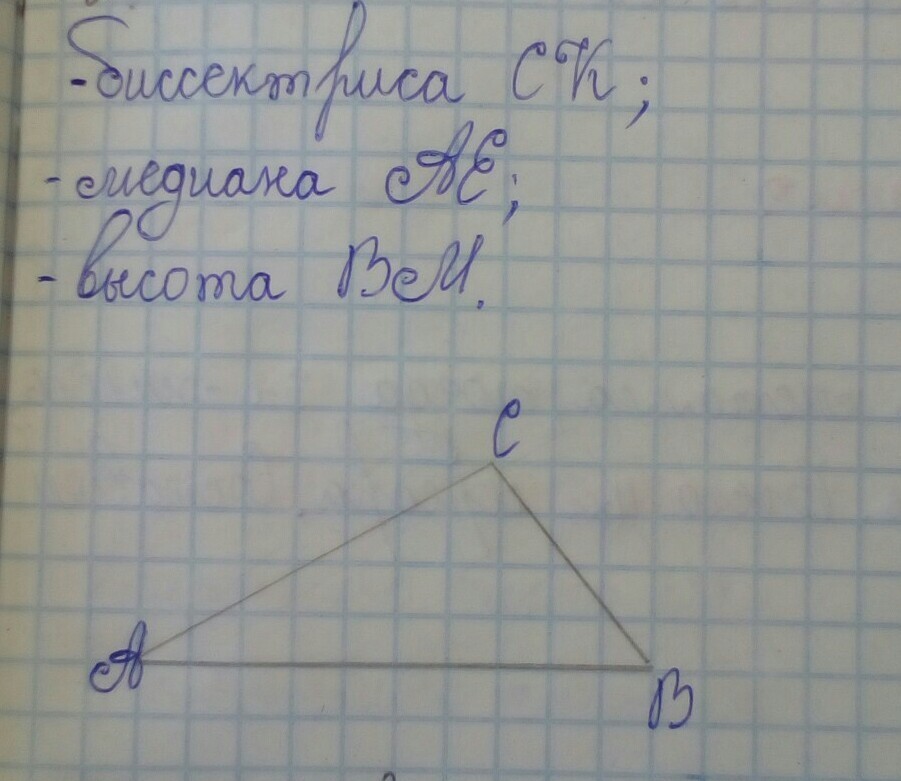 -биссектриса СК;
-медиана АЕ;
-высота ВМ.
С
А
В